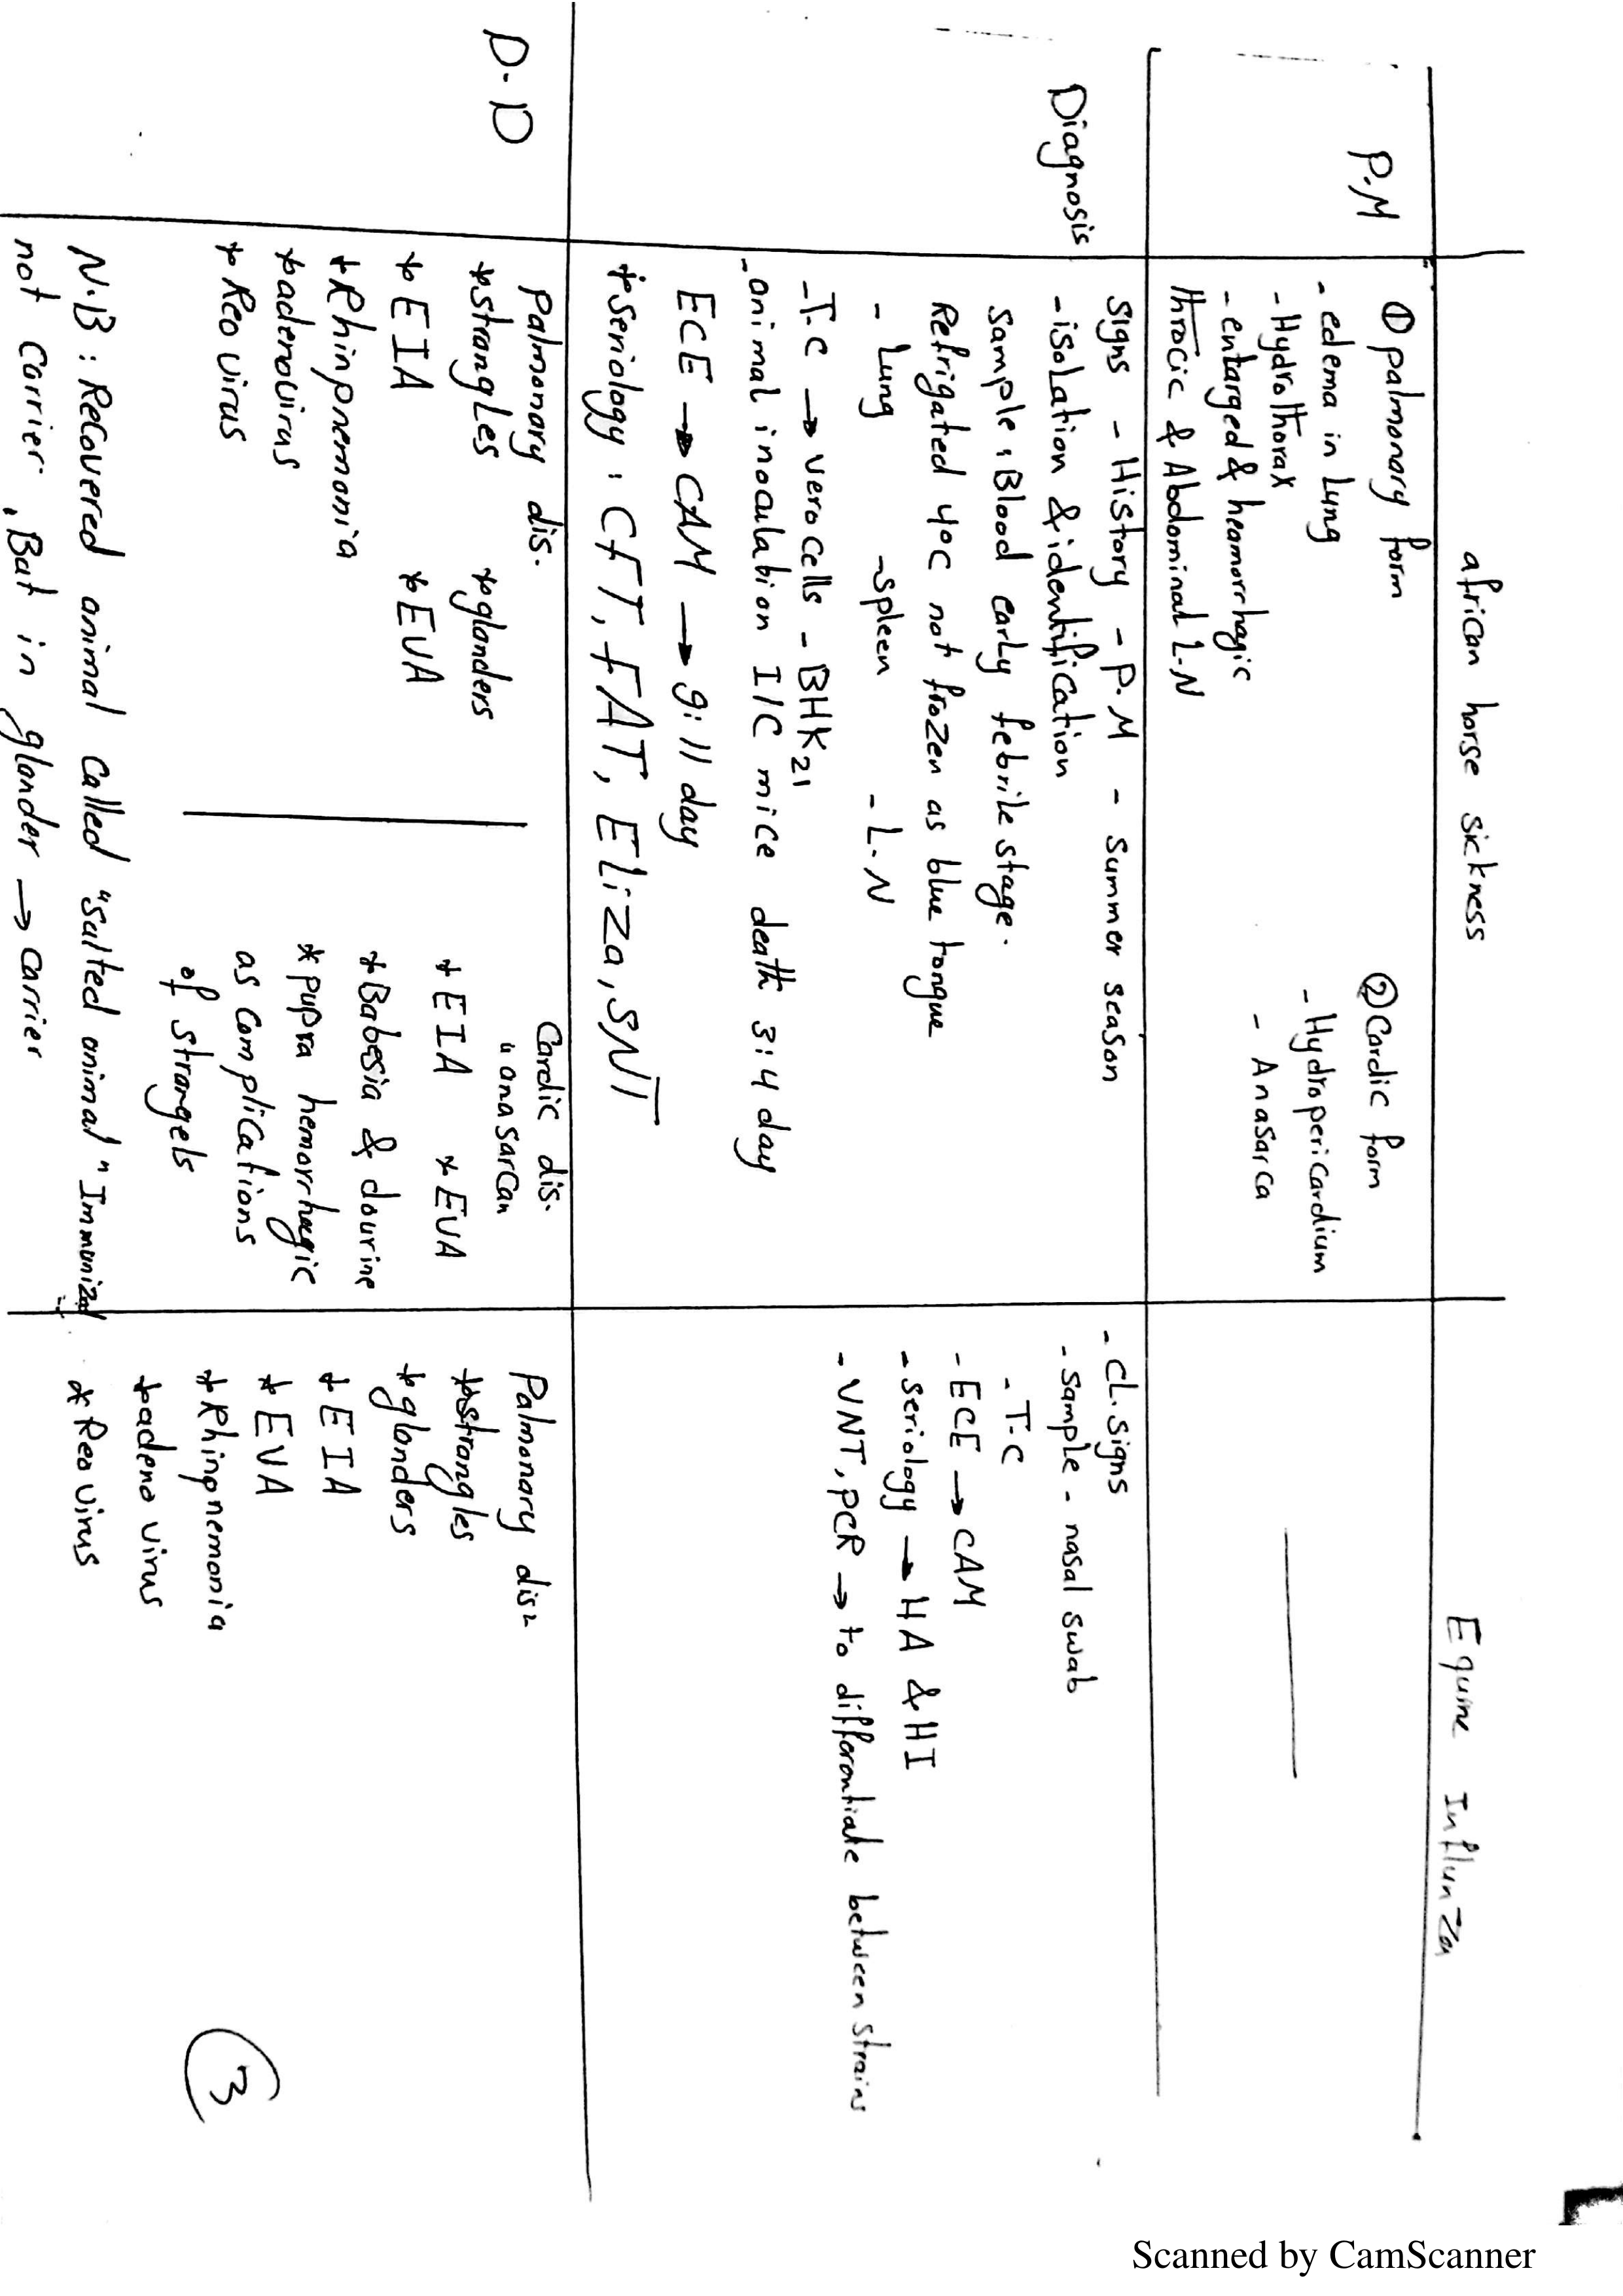 african horse sickness
Equine Influnza
P.M
① palmonary form
- edema in Lung
- Hydrothorax
- entarged & heamorrhagic
throcic & Abdominal L.N
② Cardic form
- Hydropericardium
- Anasarca
Diagnosis
signs - History - P.M - summer season
- isolation & identification
sample : Blood early febrile stage.
Refrigated 4°C not frozen as blue tongue
- Lung - spleen - L.N
- T.C → vero cells - BHK21
- animal inoculation I/C mice death 3:4 day
ECE → CAM → 9:11 day
* seriology : CFT, FAT, Eliza, SNT
- CL.signs
- sample - nasal swab
- T.C
- ECE → CAM
- seriology → HA & HI
- VNT, PCR → to differentiate between strains
D.D
Palmonary dis.
* strangles * glanders
* EIA * EVA
* Rhinpnemonia
* adenovirus
* Reo virus
Cardic dis.
"anasarcan
* EIA * EVA
* Babesia & dourine
* pupra hemorrhagic
as complications
of strangels
Palmonary dis
* strangles
* glanders
* EIA
* EVA
* Rhinpnemonia
* adeno virus
* Reo virus
N.B : Recovered animal called "salted animal" Immunized
not carrier, But in glander → carrier
3
Scanned by CamScanner